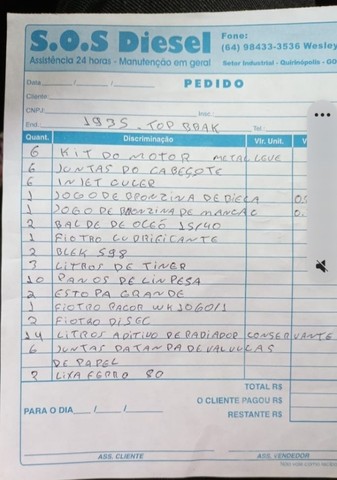 S.O.S Diesel
Assistência 24 horas - Manutenção em geral
Fone:
(64) 98433-3536 Wesley
Setor Industrial - Quirinópolis - GO
Data ___/___/___
PEDIDO
Cliente:
CNPJ: Insc.:
End. 1935. TOP BRAK Tel
Quant. Discriminação Vlr. Unit. V
6 KIT DO MOTOR METAL LEVE
6 JUNTAS DO CABEÇOTE
6 INJET CULER
1 JOGO DE BRONZINA DE BIELA
1 JOGO DE BRONZINA DE MANCAL
2 BALDE DE OLEO 15/40
1 FIOTRO LUBRIFICANTE
2 BLEK 598
3 LITROS DE TINER
10 PANOS DE LINPESA
2 ESTOPA GRANDE
1 FIOTRO RACOR WK1060/1
2 FIOTRO DISEC
14 LITROS ADITIVO DE RADIADOR CONSERVANTE
6 JUNTAS DA TANPA DE VALVULAS
DE PAPEL
2 LIXA FERRO 80
TOTAL R$
O CLIENTE PAGOU R$
RESTANTE R$
PARA O DIA ___/___/___
ASS. CLIENTE ASS. VENDEDOR